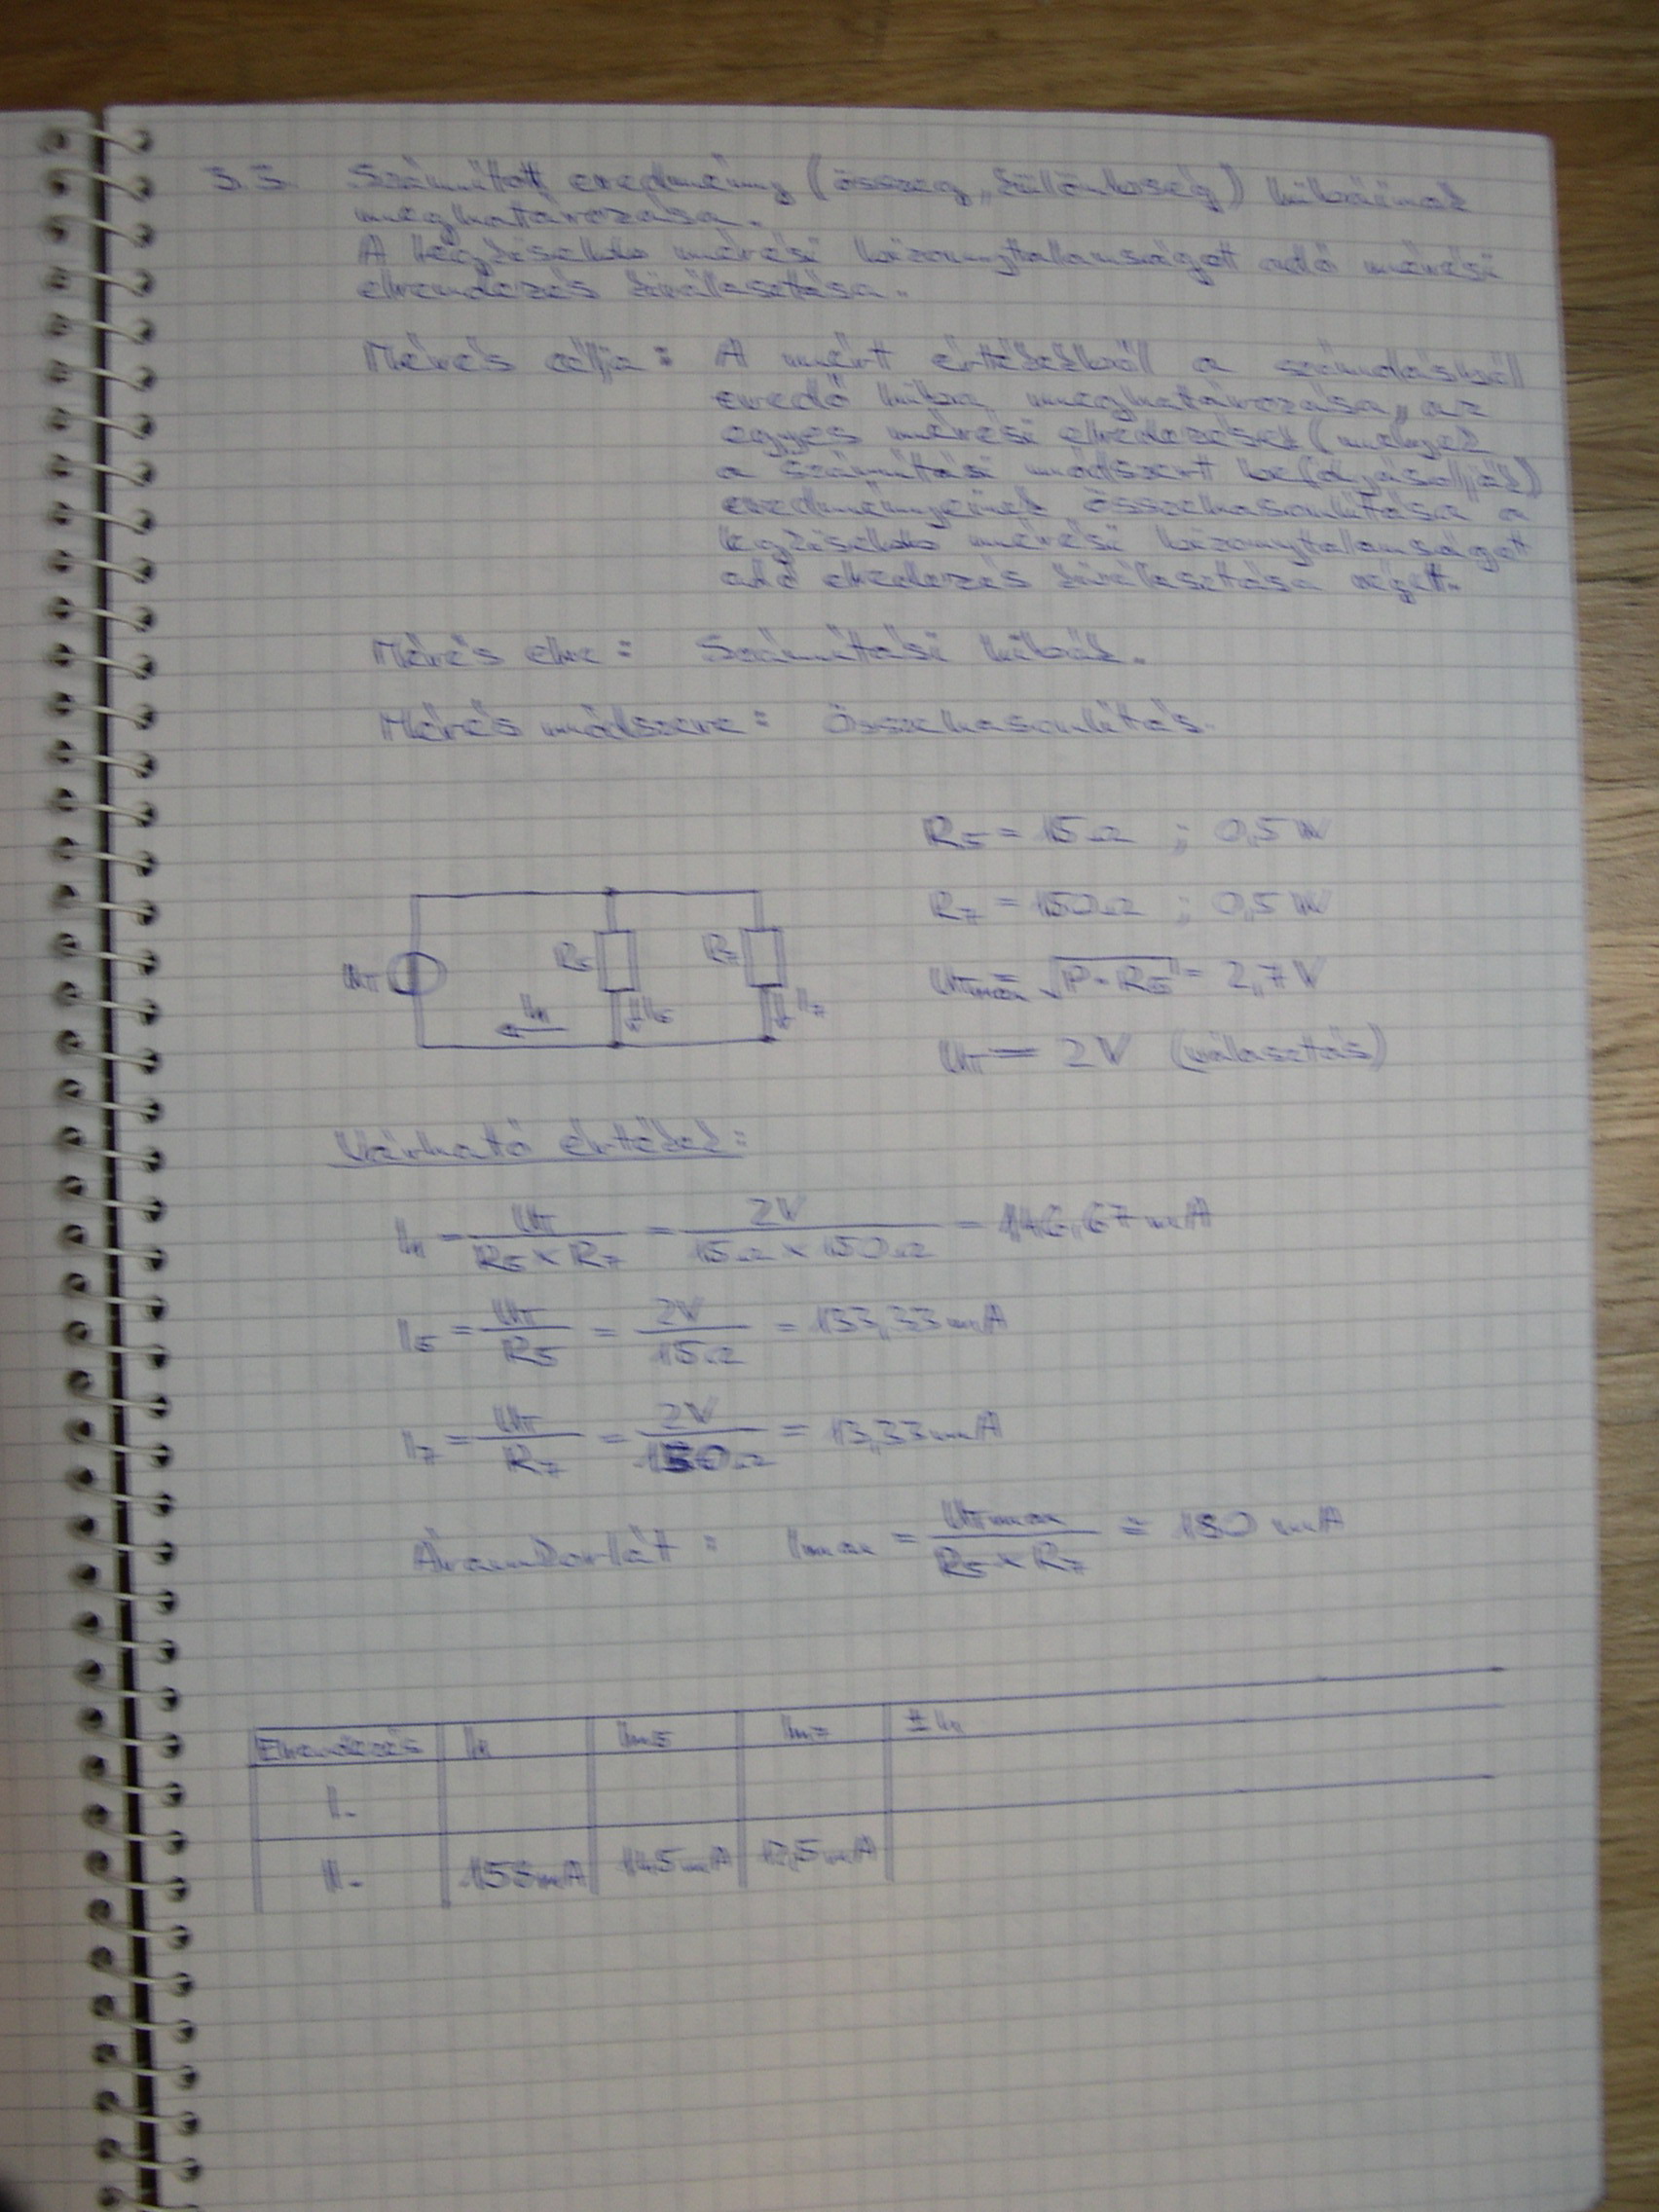 3.3. Számított eredmény (összeg, különbség) hibáinak
meghatározása.
A legkisebb mérési bizonytalanságot adó mérési
elrendezés kiválasztása.
Mérés célja: A mért értékekből a számolásból
eredő hiba meghatározása, az
egyes mérési elredezések (melyek
a számítási módszert befolyásolják)
eredményeinek összehasonlítása a
legkisebb mérési bizonytalanságot
adó elredezés kiválasztása végett.
Mérés elve: Számítási hibák.
Mérés módszere: Összehasonlítás.
R5 = 15Ω ; 0,5W
R7 = 150Ω ; 0,5W
UT R5 R7
I1 I5 I7
UTmax = √P·R5 = 2,7V
UT = 2V (választás)
Várható értékek:
I1 = UT / R5 × R7 = 2V / 15Ω × 150Ω = 146,67mA
I5 = UT / R5 = 2V / 15Ω = 133,33mA
I7 = UT / R7 = 2V / 150Ω = 13,33mA
Áramkorlát: Imax = UTmax / R5 × R7 = 180 mA
Elrendezés Im5 Im7
I.
II. 12,5mA